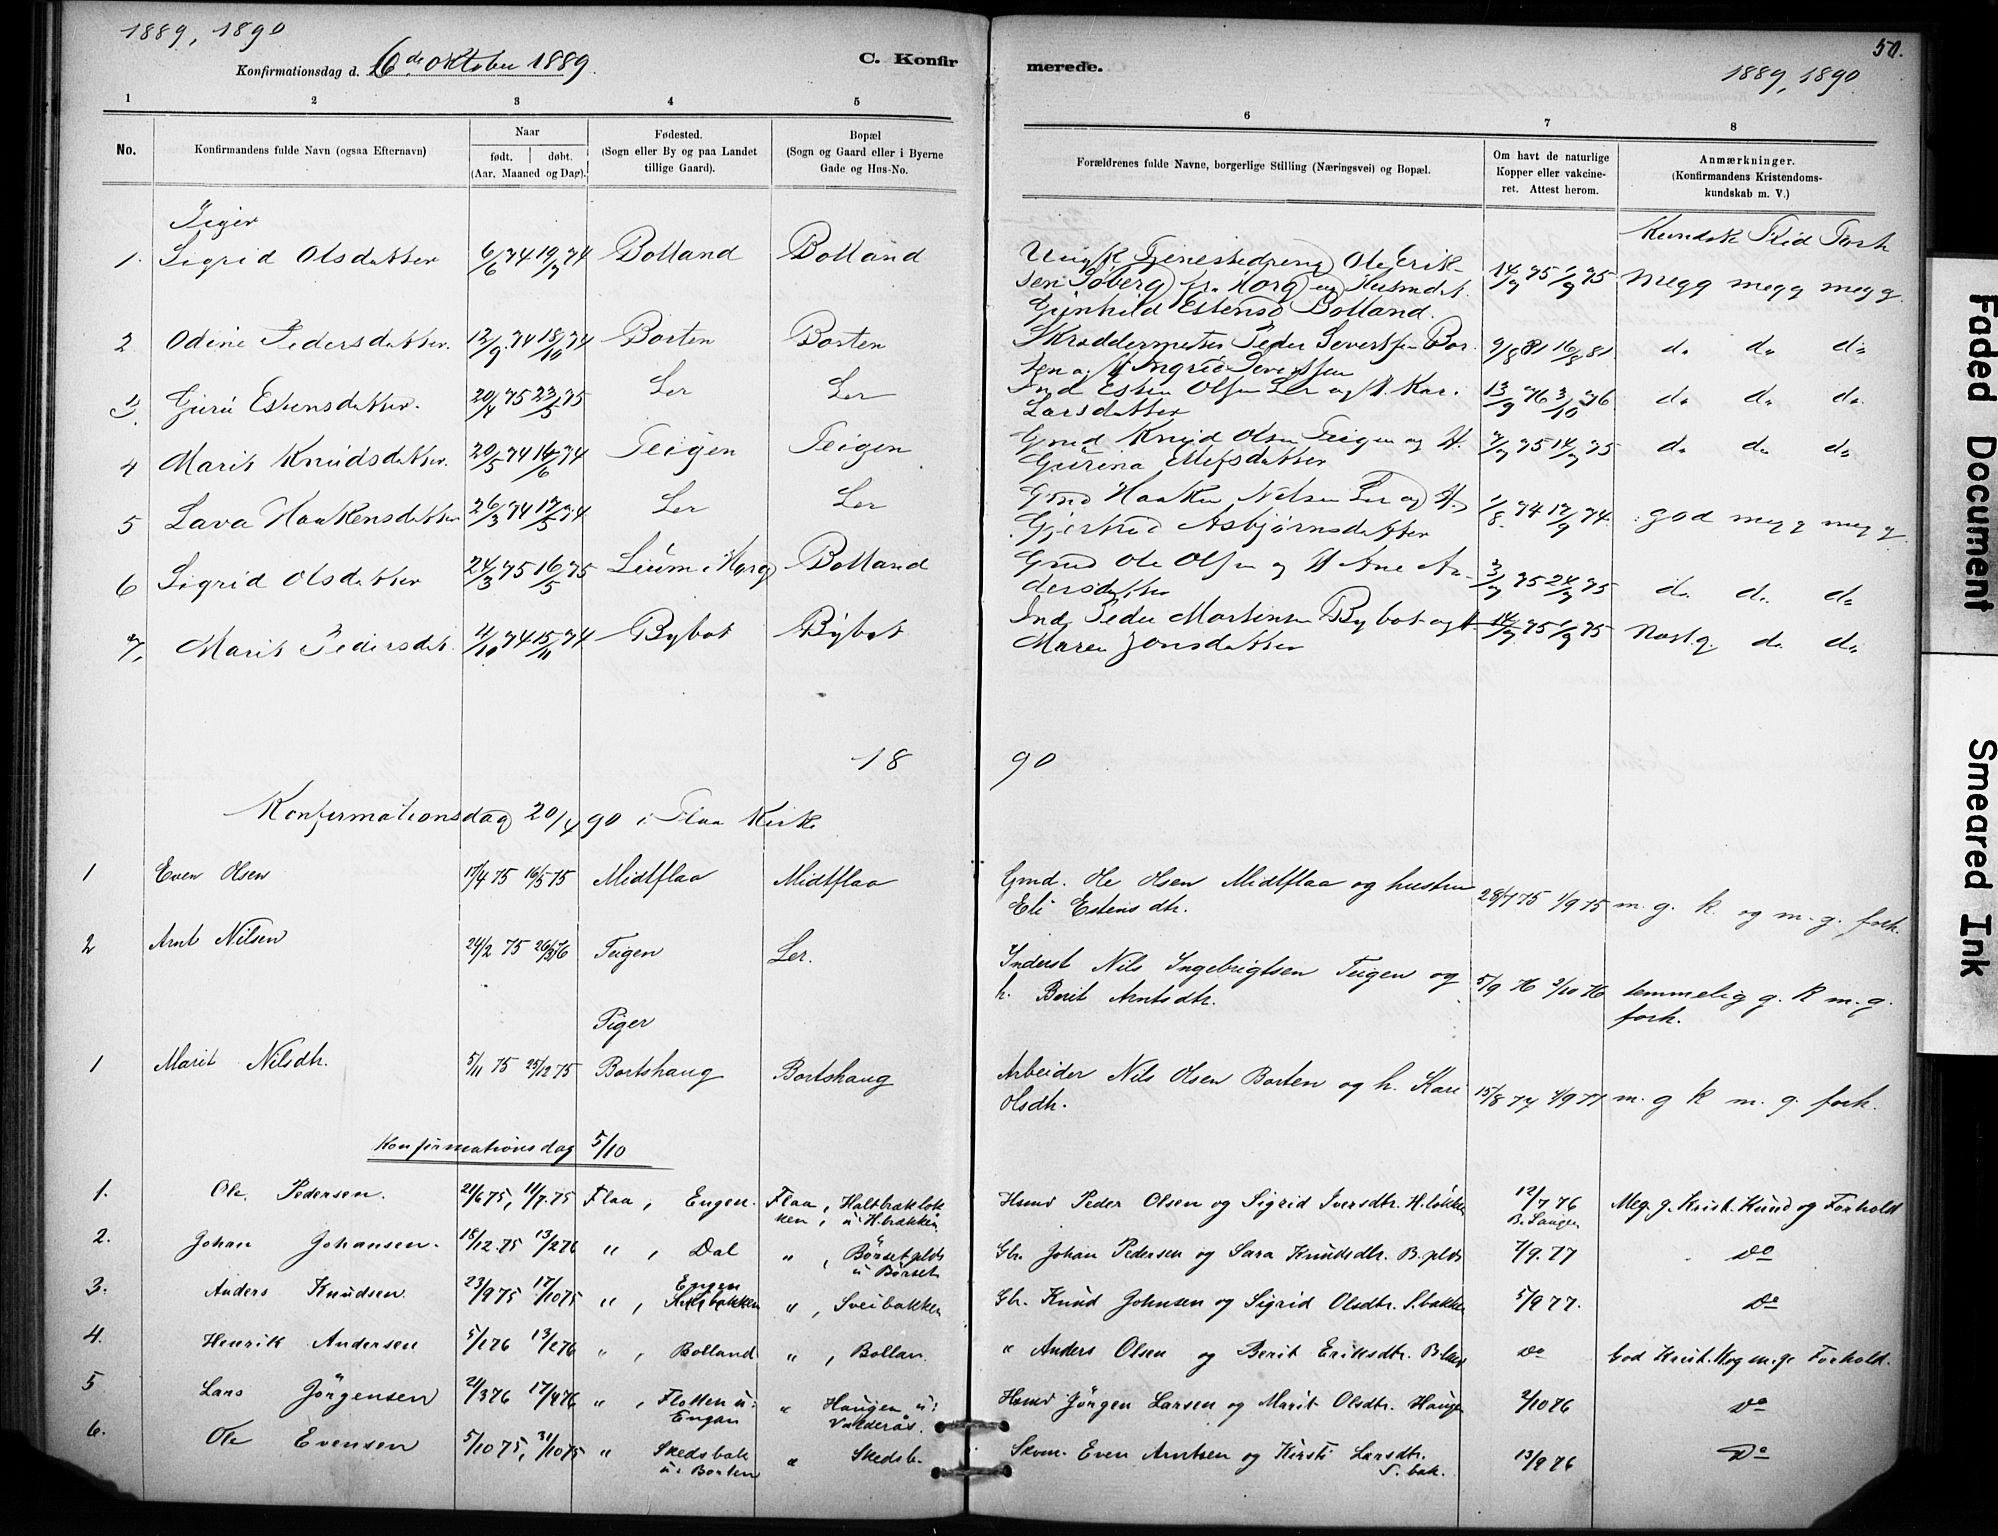 1889, 1890
Konfirmationsdag d. 6de Oktober 1889.
C. Konfirmerede.
50.
1889, 1890
1 2 3 4 5 6 7 8
No.
Konfirmandens fulde Navn (ogsaa Efternavn)
Naar
født. døbt.
(Aar. Maaned og Dag).
Fødested.
(Sogn eller By og paa Landet
tillige Gaard).
Bopæl
(Sogn og Gaard eller i Byerne
Gade og Hus-No.
Forældrenes fulde Navne, borgerlige Stilling (Næringsvei) og Bopæl.
Om havt de naturlige
Kopper eller vakcine-
ret. Attest herom.
Anmærkninger.
(Konfirmandens Kristendoms-
kundskab m. V.)
Piger
Kundsk Flid Forh
1. Sigrid Olsdatter 6/6 74 19/7 74 Bolland Bolland Ungk Tjenestedreng Ole Erik- 14/7 75 1/9 75 Megg megg megg.
sen Soberg fr. Horg og Husmdt.
Gunhild Estensd Bolland.
2 Odine Pedersdatter. 12/9 74 18/10 74 Borten Borten Skreddermester Peder Sivertsen Bor- 9/8 81 16/8 81 do do do
ten og H Ingrid Sivertsen
3. Guru Estensdatter. 20/4 75 23/5 75 Ler Ler Ind Esten Olsen Ler og H. Kari 13/9 76 3/10 76 do do do
Larsdatter
4 Marit Knudsdatter. 20/5 74 16/6 74 Teigen Teigen Gmd Knud Olsen Teigen og H. 7/7 75 14/7 75 do do do
Gurina Ellefsdatter
5 Lava Haakensdatter 26/3 74 17/5 74 Ler Ler Gmd Haaken Nilsen Ler og H. 1/8 74 12/9 74. god megg megg
Gjertrud Asbjørnsdatter
6 Sigrid Olsdatter 24/3 75 16/5 75 Lium i Horg Bolland Gmd Ole Olsen og H Ane An- 3/7 75 24/7 75 do do do
dersdatter
7. Marit Pedersdt. 4/10 74 15/11 74 Bybot Bybot Ind. Peder Martinsen Bybot og H 14/7 75 1/9 75 Nost.g. do do
Maren Jonsdatter
18 90
Konfirmationsdag 20/4 90 i Flaa Kirke
1 Even Olsen 17/4 75 16/5 75 Midtflaa Midtflaa Gmd. Ole Olsen Midtflaa og hustru 28/7 75 1/9 75 m. g. k. og m. g. forh.
Eli Estensdtr.
2 Arnt Nilsen 24/2 75 26/3 76 Teigen Ler. Inderst Nils Ingebrigtsen Teigen og 5/9 76 3/10 76 temmelig g. K m. g.
h. Berit Arntsdtr. forh.
Piger
1 Marit Nilsdtr. 5/11 75 25/12 75 Bortshaug Bortshaug Arbeider Nils Olsen Borten og h. Kari 15/8 77 4/9 77 m. g K m. g. forh.
Olsdtr.
Konfirmationsdag 5/10
1. Ole Pedersen. 21/6 75, 11/7 75 Flaa, Engen. Flaa, Haltbækløk Hsmd Peder Olsen og Sigrid Iversdtr. H.løkken 12/7 76 Meg. g. Krist. Kund og Forhold
ken, u. H.bækken
2. Johan Johansen. 18/12 75 13/2 76 " , Dal " , Børsetplds Gbr. Johan Pedersen og Sara Knudsdtr. B. plds 7/9. 77 Do
u Børset
3. Anders Knudsen 23/9 75 17/10 75 " , Engen " , Sveibakken Gbr. Knud Johnsen og Sigrid Olsdtr. S.bakken 5/9 77. Do
4. Henrik Andersen 5/1 76 13/2 76 " , Bolland " , Bollan. " Anders Olsen og Berit Eriksdtr. B.land Do God Krist. K og m.g. Forhold.
5 Lars Jörgensen 21/3 76 17/4 76 " , Flotten u: " Haugen u: Hsmd Jörgen Larsen og Marit Olsdtr. Haugen 2/10 76 Do
Engan Valderås.
6. Ole Evensen 5/10 75, 31/10 75 " Skedsbak " Skedsb. Skom. Even Arntsen og Kirsti Larsdtr. 13/9 76 Do
u: Borten S. bak.
Faded Document
Smeared Ink